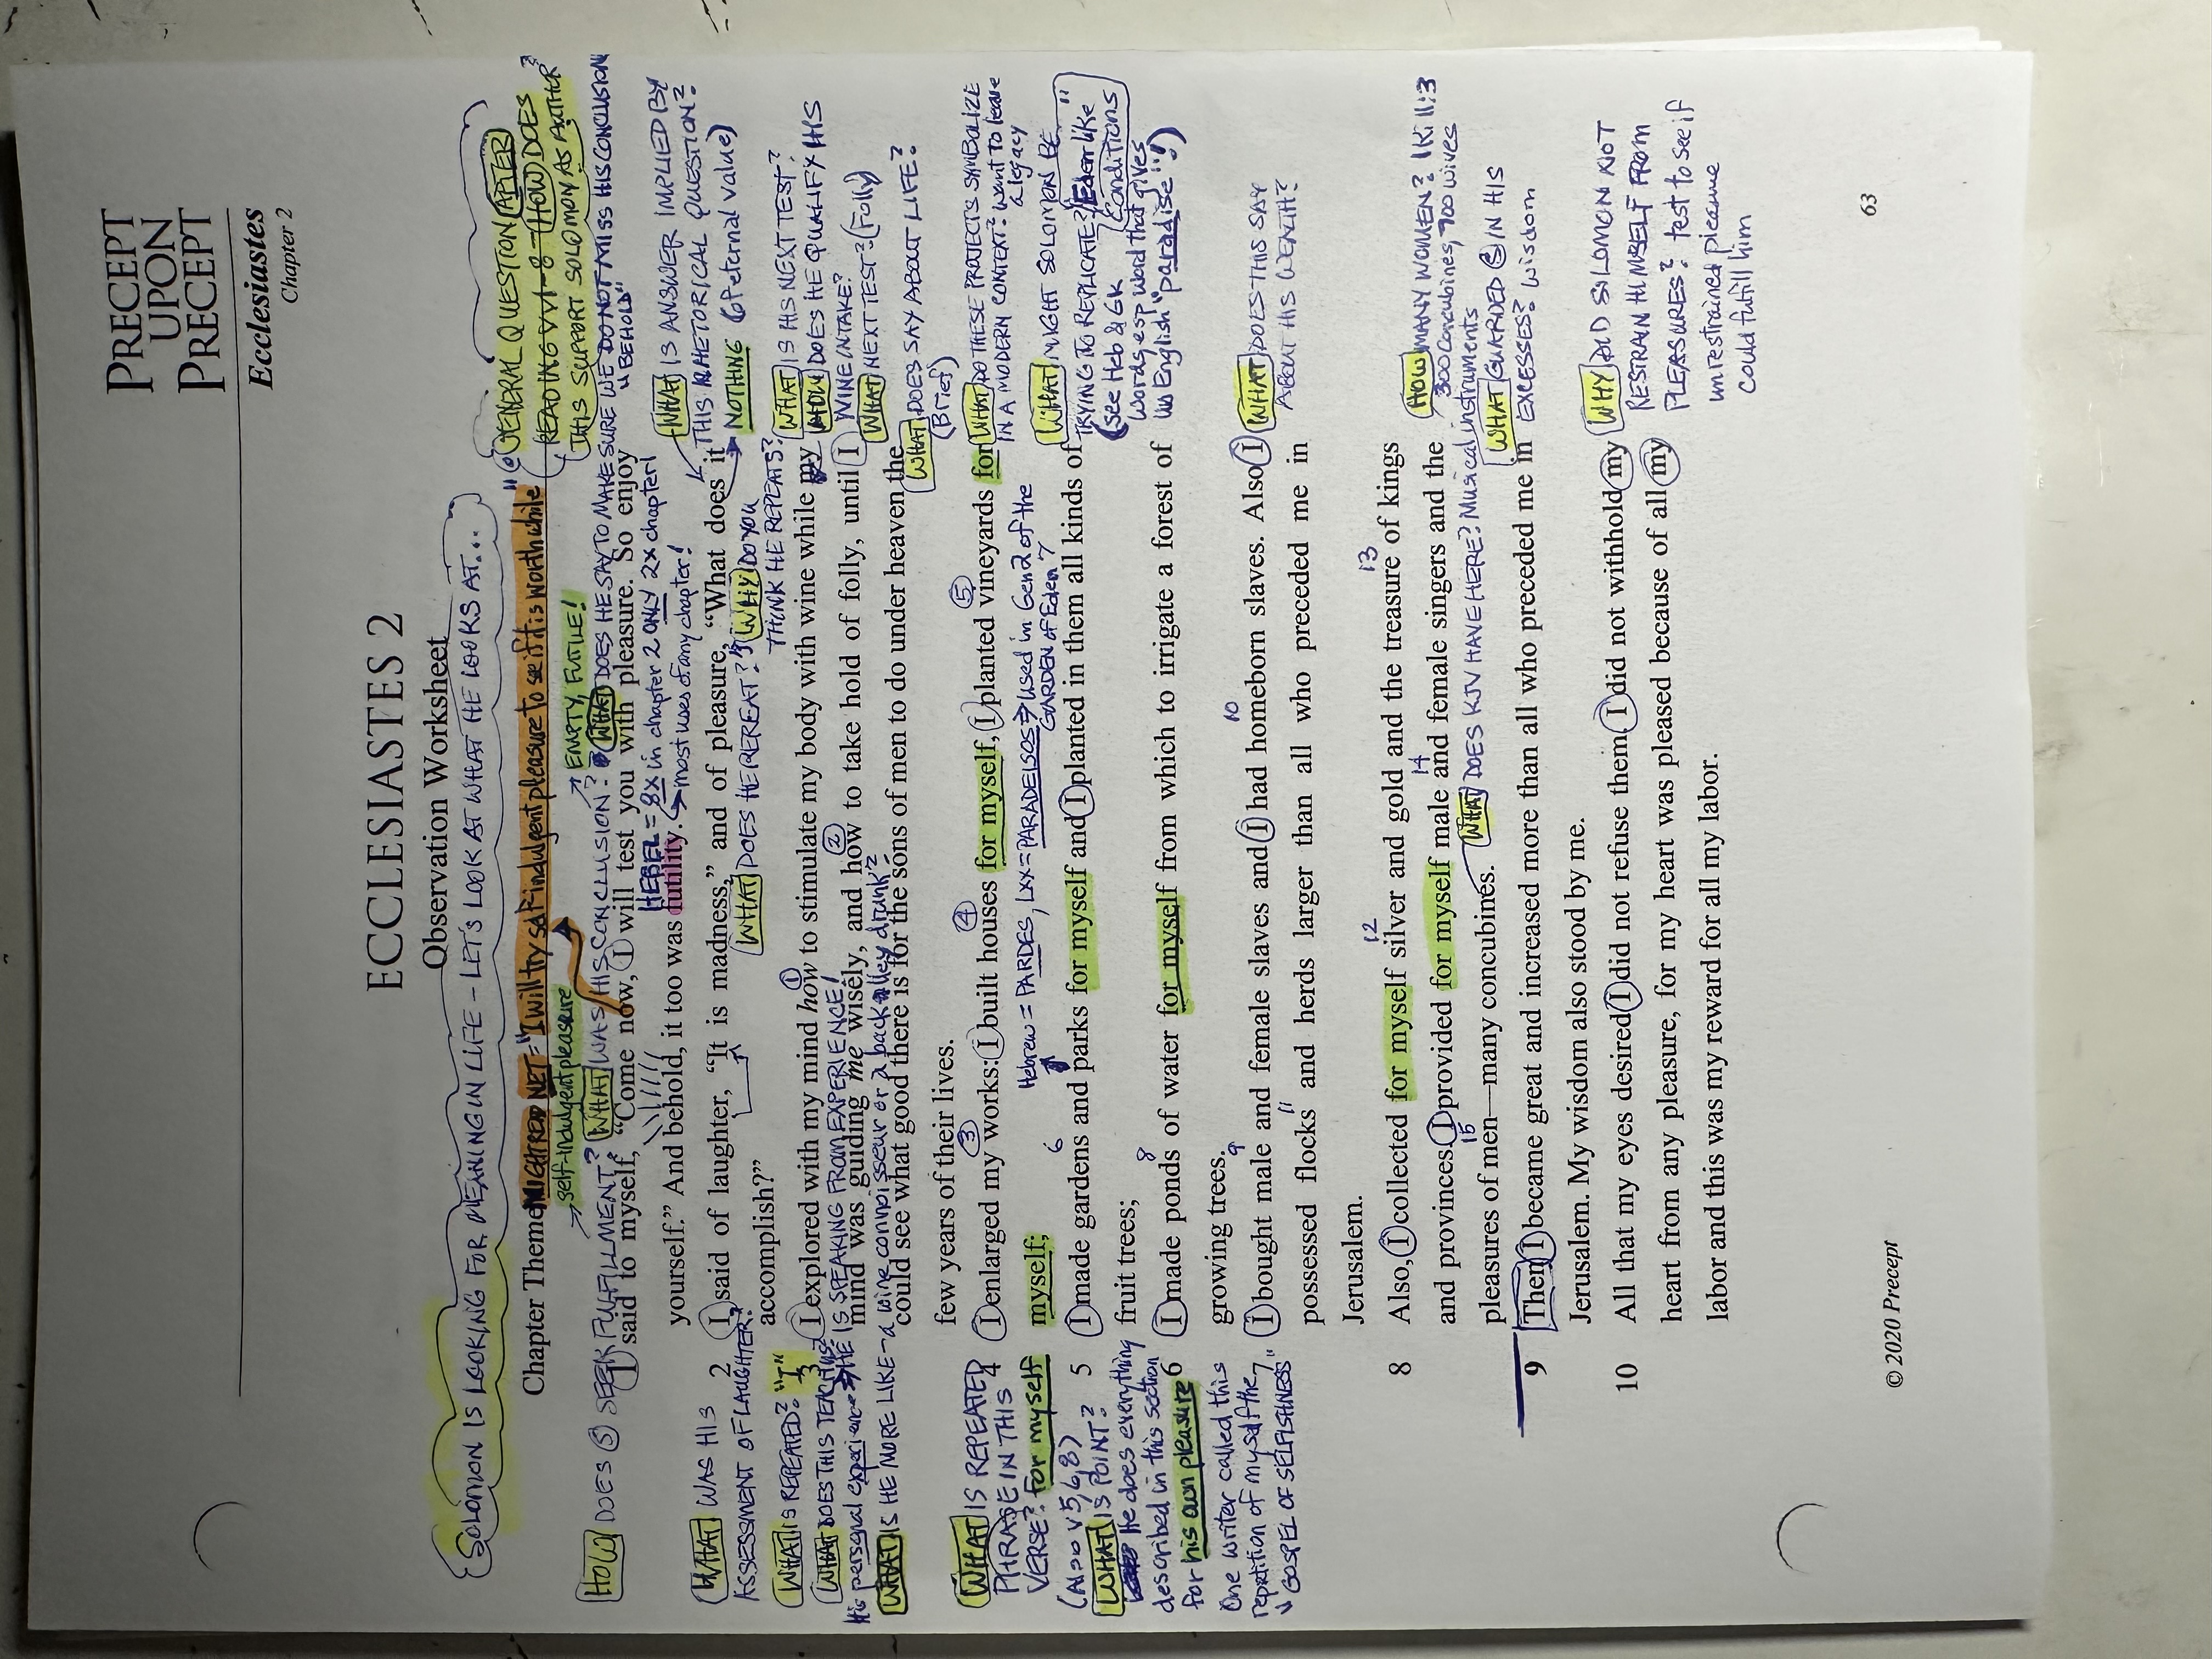 PRECEPT
UPON
PRECEPT
Ecclesiastes
Chapter 2
ECCLESIASTES 2
Observation Worksheet
SOLOMON IS LOOKING FOR MEANING IN LIFE - LET'S LOOK AT WHAT HE LOOKS AT...
GENERAL QUESTION AFTER
READING vv1-8 - HOW DOES
THIS SUPPORT SOLOMON AS AUTHOR?
Chapter Theme MIGHT READ NET="I will try self indulgent pleasure to see if it is worthwhile"
self-indulgent pleasure
EMPTY, FUTILE!
HOW DOES S SEEK FULFILLMENT? WHAT WAS HIS CONCLUSION? WHAT DOES HE SAY TO MAKE SURE WE DO NOT MISS HIS CONCLUSION
"BEHOLD"
I said to myself, "Come now, I will test you with pleasure. So enjoy
HEBEL = 8X in chapter 2 ONLY 2x chapter 1
yourself." And behold, it too was futility.
most uses of any chapter!
WHAT IS ANSWER IMPLIED BY
THIS RHETORICAL QUESTION?
NOTHING (of eternal value)
WHAT WAS HIS
ASSESSMENT OF LAUGHTER?
2 I said of laughter, "It is madness," and of pleasure, "What does it
accomplish?"
WHAT DOES HE REPEAT? "I" WHY DO YOU
THINK HE REPEATS?
WHAT IS REPEATED? "I"
WHAT DOES THIS TEACH US?
His personal experience HE IS SPEAKING FROM EXPERIENCE!
WHAT IS HE MORE LIKE - a wine connoisseur or a back alley drunk?
3 I explored with my mind how to stimulate my body with wine while my
mind was guiding me wisely, and how to take hold of folly, until I
could see what good there is for the sons of men to do under heaven the
few years of their lives.
WHAT IS HIS NEXT TEST?
HOW DOES HE QUALIFY HIS
WINE INTAKE?
WHAT NEXT TEST? (Folly)
WHAT DOES SAY ABOUT LIFE?
(Brief)
WHAT IS REPEATED
PHRASE IN THIS
VERSE? for myself
(Also v5,6,8)
4 I enlarged my works: I built houses for myself, I planted vineyards for
myself;
WHAT DO THESE PROJECTS SYMBOLIZE
IN A MODERN CONTEXT? want to leave
a legacy
Hebrew = PARDES, LXX = PARADEISOS used in Gen 2 of the
GARDEN of Eden
WHAT IS POINT?
He does everything
described in this section
for his own pleasure
5 I made gardens and parks for myself and I planted in them all kinds of
fruit trees;
WHAT MIGHT SOLOMON BE
TRYING TO REPLICATE? "Eden like"
Conditions
(see Heb & Gk
words esp word that gives
us English "paradise"!)
6 I made ponds of water for myself from which to irrigate a forest of
growing trees.
One writer called this
repetition of myself the
"GOSPEL OF SELFISHNESS"
7 I bought male and female slaves and I had homeborn slaves. Also I
possessed flocks and herds larger than all who preceded me in
Jerusalem.
WHAT DOES THIS SAY
ABOUT HIS WEALTH?
8 Also, I collected for myself silver and gold and the treasure of kings
and provinces. I provided for myself male and female singers and the
pleasures of men—many concubines.
HOW MANY WOMEN? 1Ki11:3
300 concubines, 700 wives
WHAT DOES KJV HAVE HERE? Musical instruments
WHAT GUARDED S IN HIS
EXCESSES? Wisdom
9 Then I became great and increased more than all who preceded me in
Jerusalem. My wisdom also stood by me.
10 All that my eyes desired I did not refuse them. I did not withhold my
heart from any pleasure, for my heart was pleased because of all my
labor and this was my reward for all my labor.
WHY DID SOLOMON NOT
RESTRAIN HIMSELF FROM
PLEASURES? test to see if
unrestrained pleasure
could fulfill him
© 2020 Precept
63